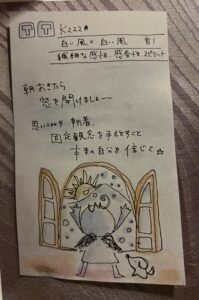 K222
白い風 × 白い風 音1
繊細な感性、感受性、スピリット
朝おきたら
窓を開けましょー
思いこみや 執着
固定観念を手放すこと
本来の自分を信じて☆